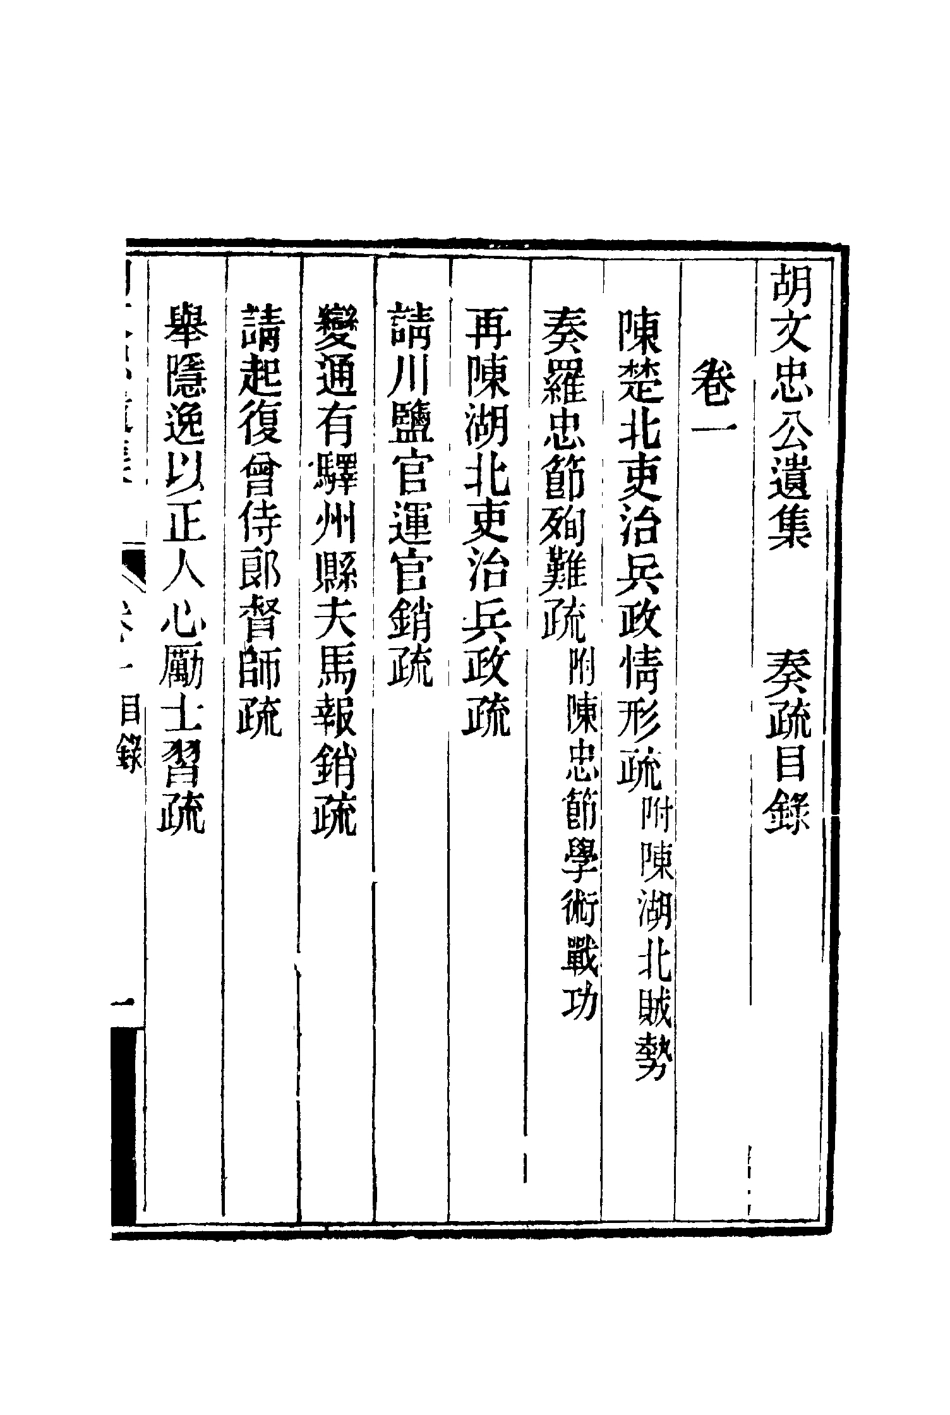 胡文忠公遺集　奏疏目錄
卷一
陳楚北吏治兵政情形疏附陳湖北賊勢
奏羅忠節殉難疏附陳忠節學術戰功
再陳湖北吏治兵政疏
請川鹽官運官銷疏
變通有驛州縣夫馬報銷疏
請起復曾侍郎督師疏
舉隱逸以正人心勵士習疏
目錄
一